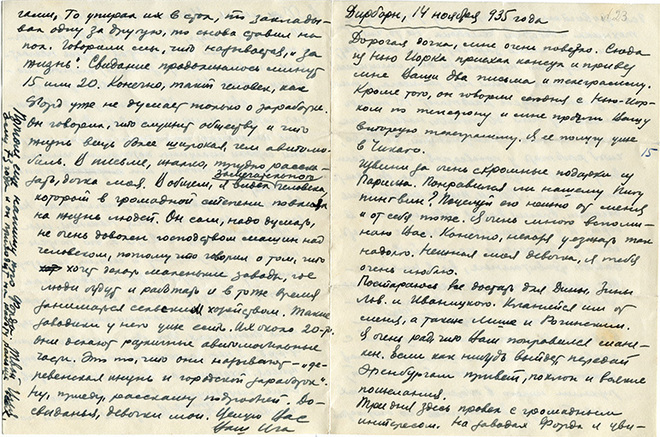 гами. То упирал их в стол, то заклады-
вал одну за другую, то снова ставил на
пол. Говорили мы, что называется, „за
жизнь". Свидание продолжалось минут
15 или 20. Конечно, такой человек, как
Форд уже не думает только о заработке.
Он говорил, что служит обществу и что
жизнь вещь более широкая, чем автомо-
биль. В письме, жалко, трудно расска-
замечательного
зать, дочка моя. В общем, я видел человека,
который в громадной степени повлиял
на жизнь людей. Он сам, надо думать,
не очень доволен господством машин над
человеком, потому что говорил о том, что
хочет делать маленькие заводы, где
люди будут и работать и в то же время
заниматься сельским хозяйством. Такие
заводики у него уже есть. Их около 20-и,
они делают различные автомобильные
части. Это то, что они называют – „де-
ревенская жизнь и городской заработок".
Ну, приеду, расскажу подробней. До-
свиданья, девочки мои. Целую Вас
Ваш Иля
Потом еще напишу про Форда. Твой Иля
Ему 73 года и он
123
Дирборн, 14 ноября 935 года
Дорогая дочка, мне очень повезло. Сюда
из Нью Йорка приехал консул и привез
мне Ваши два письма и телеграмму.
Кроме того, он говорил сегодня с Нью-Йор-
ком по телефону и мне прочли Вашу
вторую телеграмму. Я ее получу уже
в Чикаго.
15
Извини за очень скромные подарки из
Парижа. Понравился ли нашему Пигу
пингвин? Поцелуй его нежно от меня
и от себя тоже. Я очень много вспоми-
наю Вас. Конечно, нельзя уезжать так
надолго. Нежная моя девочка, я тебя
очень люблю.
Постараюсь все достать для Дины, Зины
Льв. и Иваницкого. Кланяйся им от
меня, а также Мише и Рогинским.
Я очень рад, что Вам понравился мане-
кен. Если как нибудь выйдет, передай
Эренбургам привет, поклон и всякие
пожелания.
Три дня здесь провел с громадным
интересом. На заводах Форда я уви-